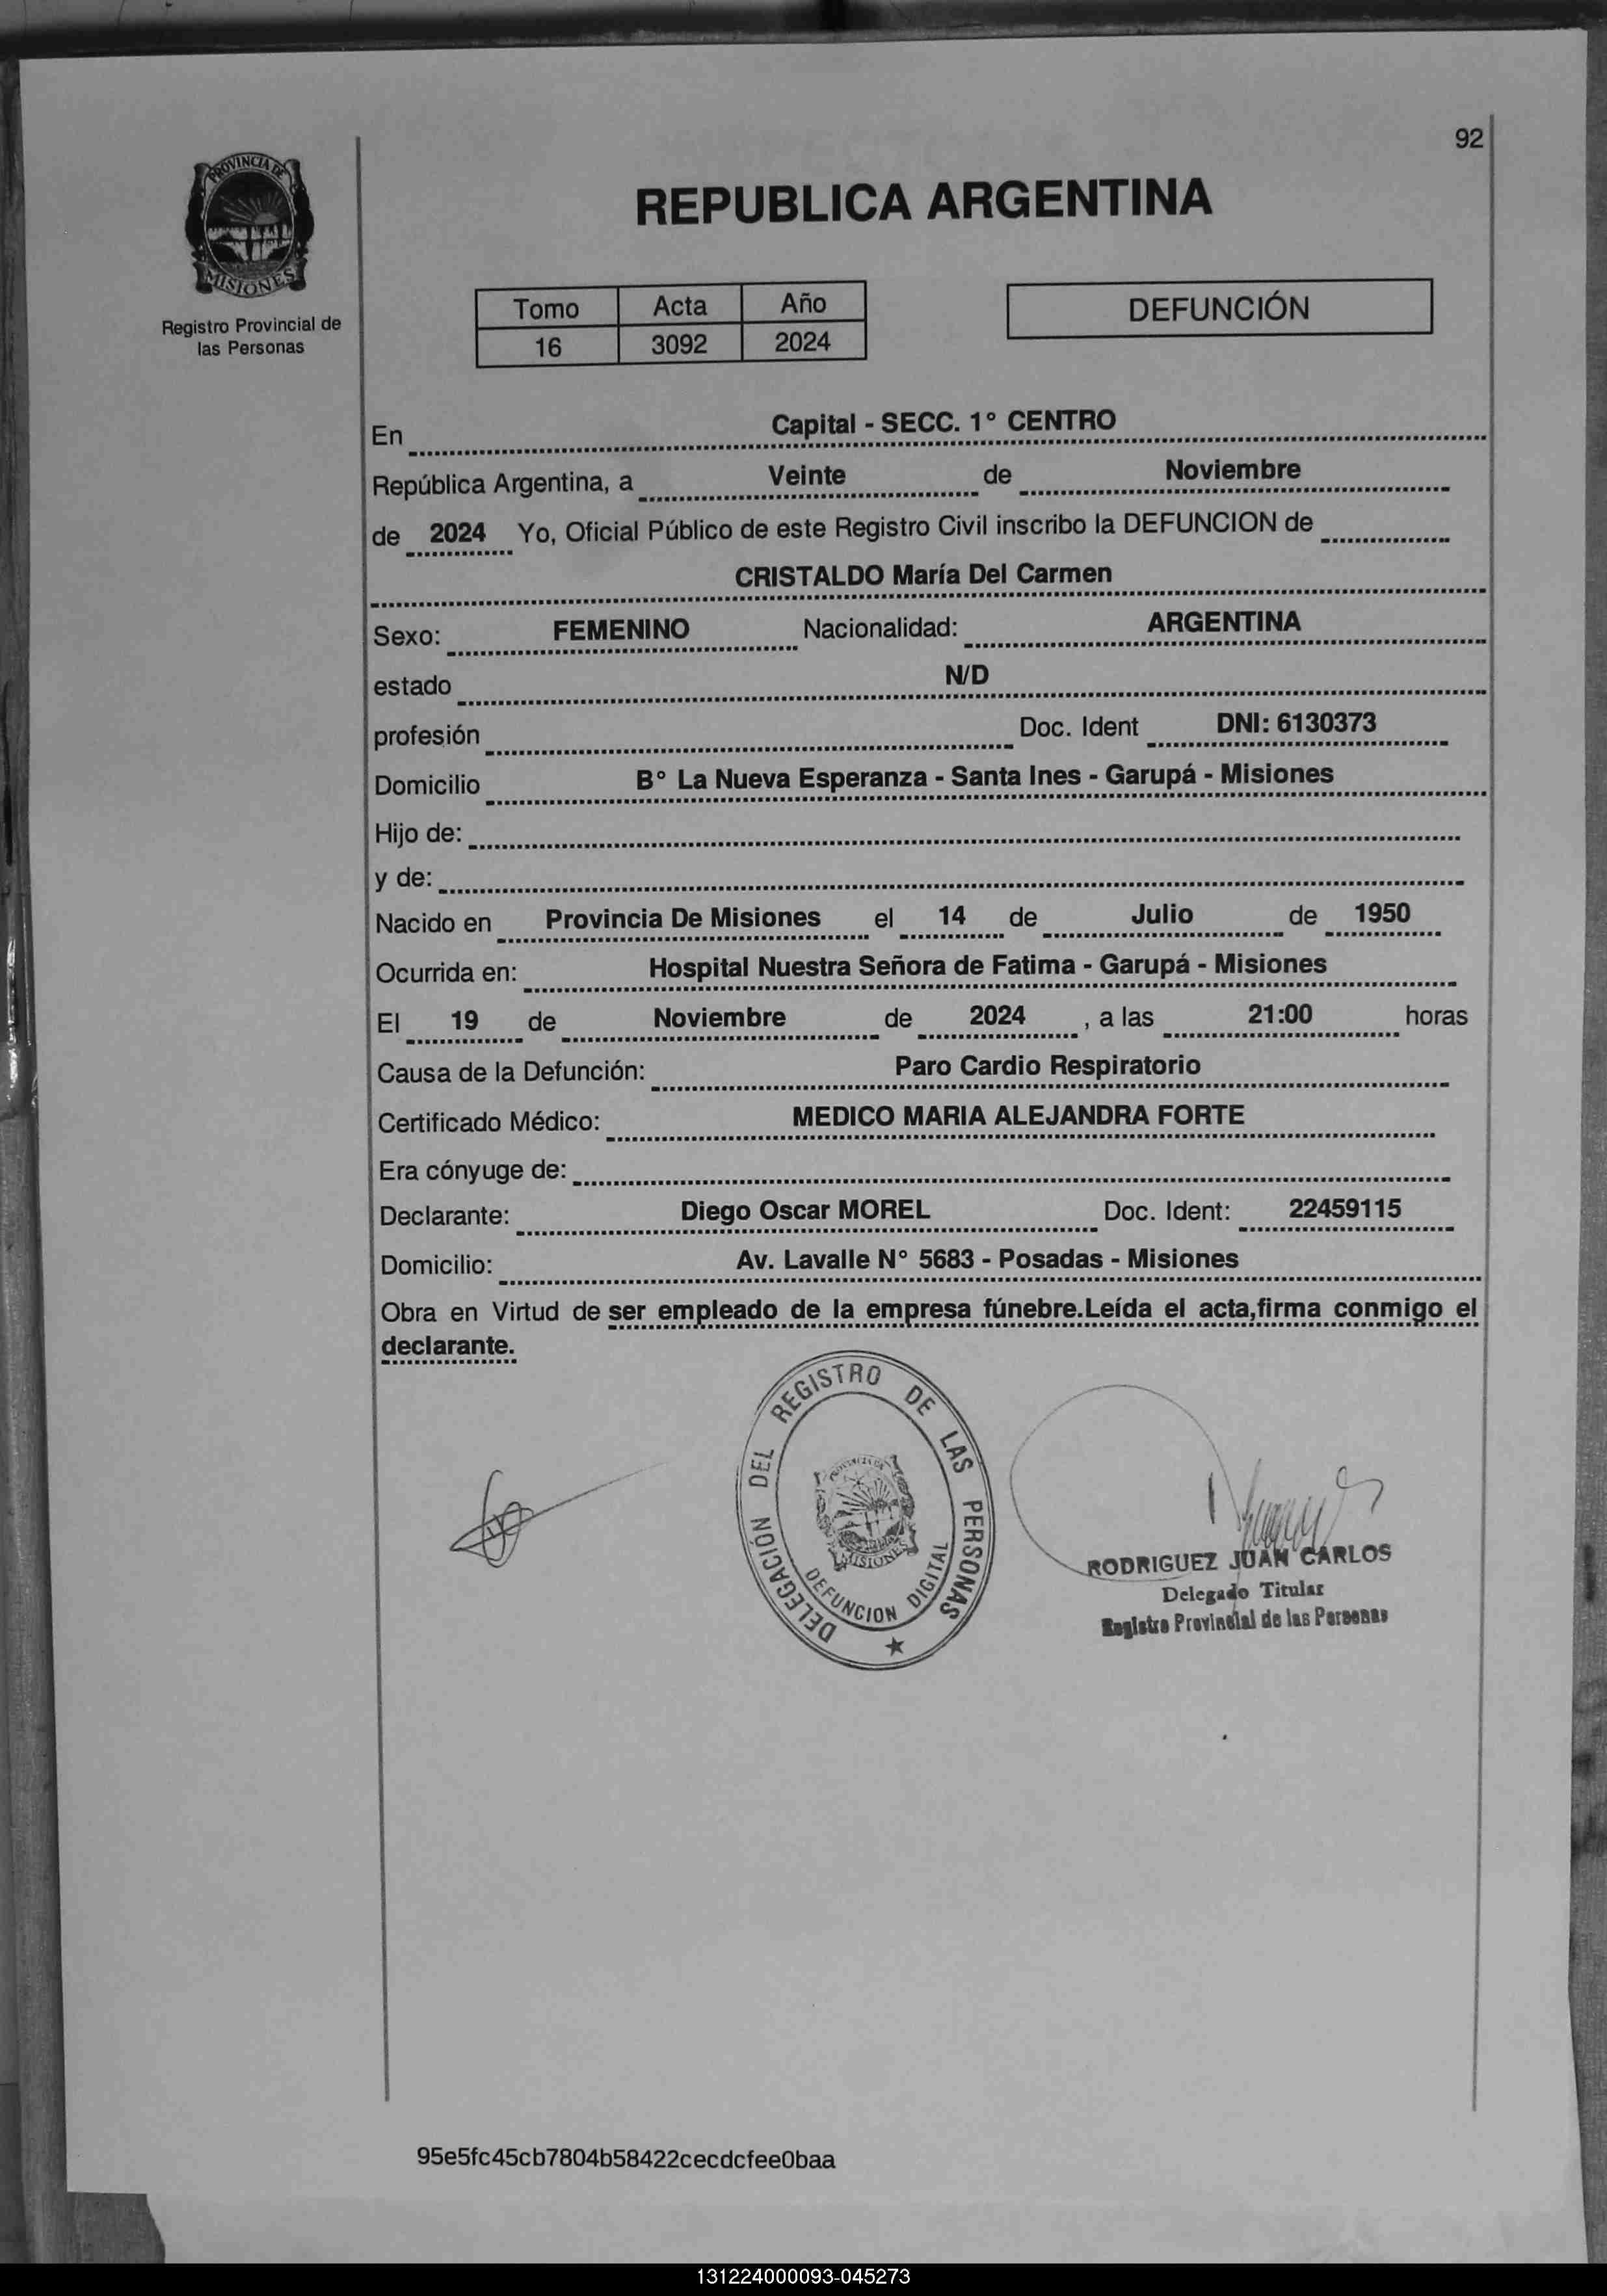 92
PROVINCIA DE
MISIONES
Registro Provincial de
las Personas
REPUBLICA ARGENTINA
Tomo Acta Año
16 3092 2024
DEFUNCIÓN
En Capital - SECC. 1° CENTRO
República Argentina, a Veinte de Noviembre
de 2024 Yo, Oficial Público de este Registro Civil inscribo la DEFUNCION de
CRISTALDO María Del Carmen
Sexo: FEMENINO Nacionalidad: ARGENTINA
estado N/D
profesión Doc. Ident DNI: 6130373
Domicilio B° La Nueva Esperanza - Santa Ines - Garupá - Misiones
Hijo de:
y de:
Nacido en Provincia De Misiones el 14 de Julio de 1950
Ocurrida en: Hospital Nuestra Señora de Fatima - Garupá - Misiones
El 19 de Noviembre de 2024 , a las 21:00 horas
Causa de la Defunción: Paro Cardio Respiratorio
Certificado Médico: MEDICO MARIA ALEJANDRA FORTE
Era cónyuge de:
Declarante: Diego Oscar MOREL Doc. Ident: 22459115
Domicilio: Av. Lavalle N° 5683 - Posadas - Misiones
Obra en Virtud de ser empleado de la empresa fúnebre.Leída el acta,firma conmigo el
declarante.
DELEGACIÓN DEL REGISTRO DE LAS PERSONAS
PROVINCIA DE
MISIONES
DEFUNCION DIGITAL
RODRIGUEZ JUAN CARLOS
Delegado Titular
Registro Provincial de las Personas
95e5fc45cb7804b58422cecdcfee0baa
131224000093-045273